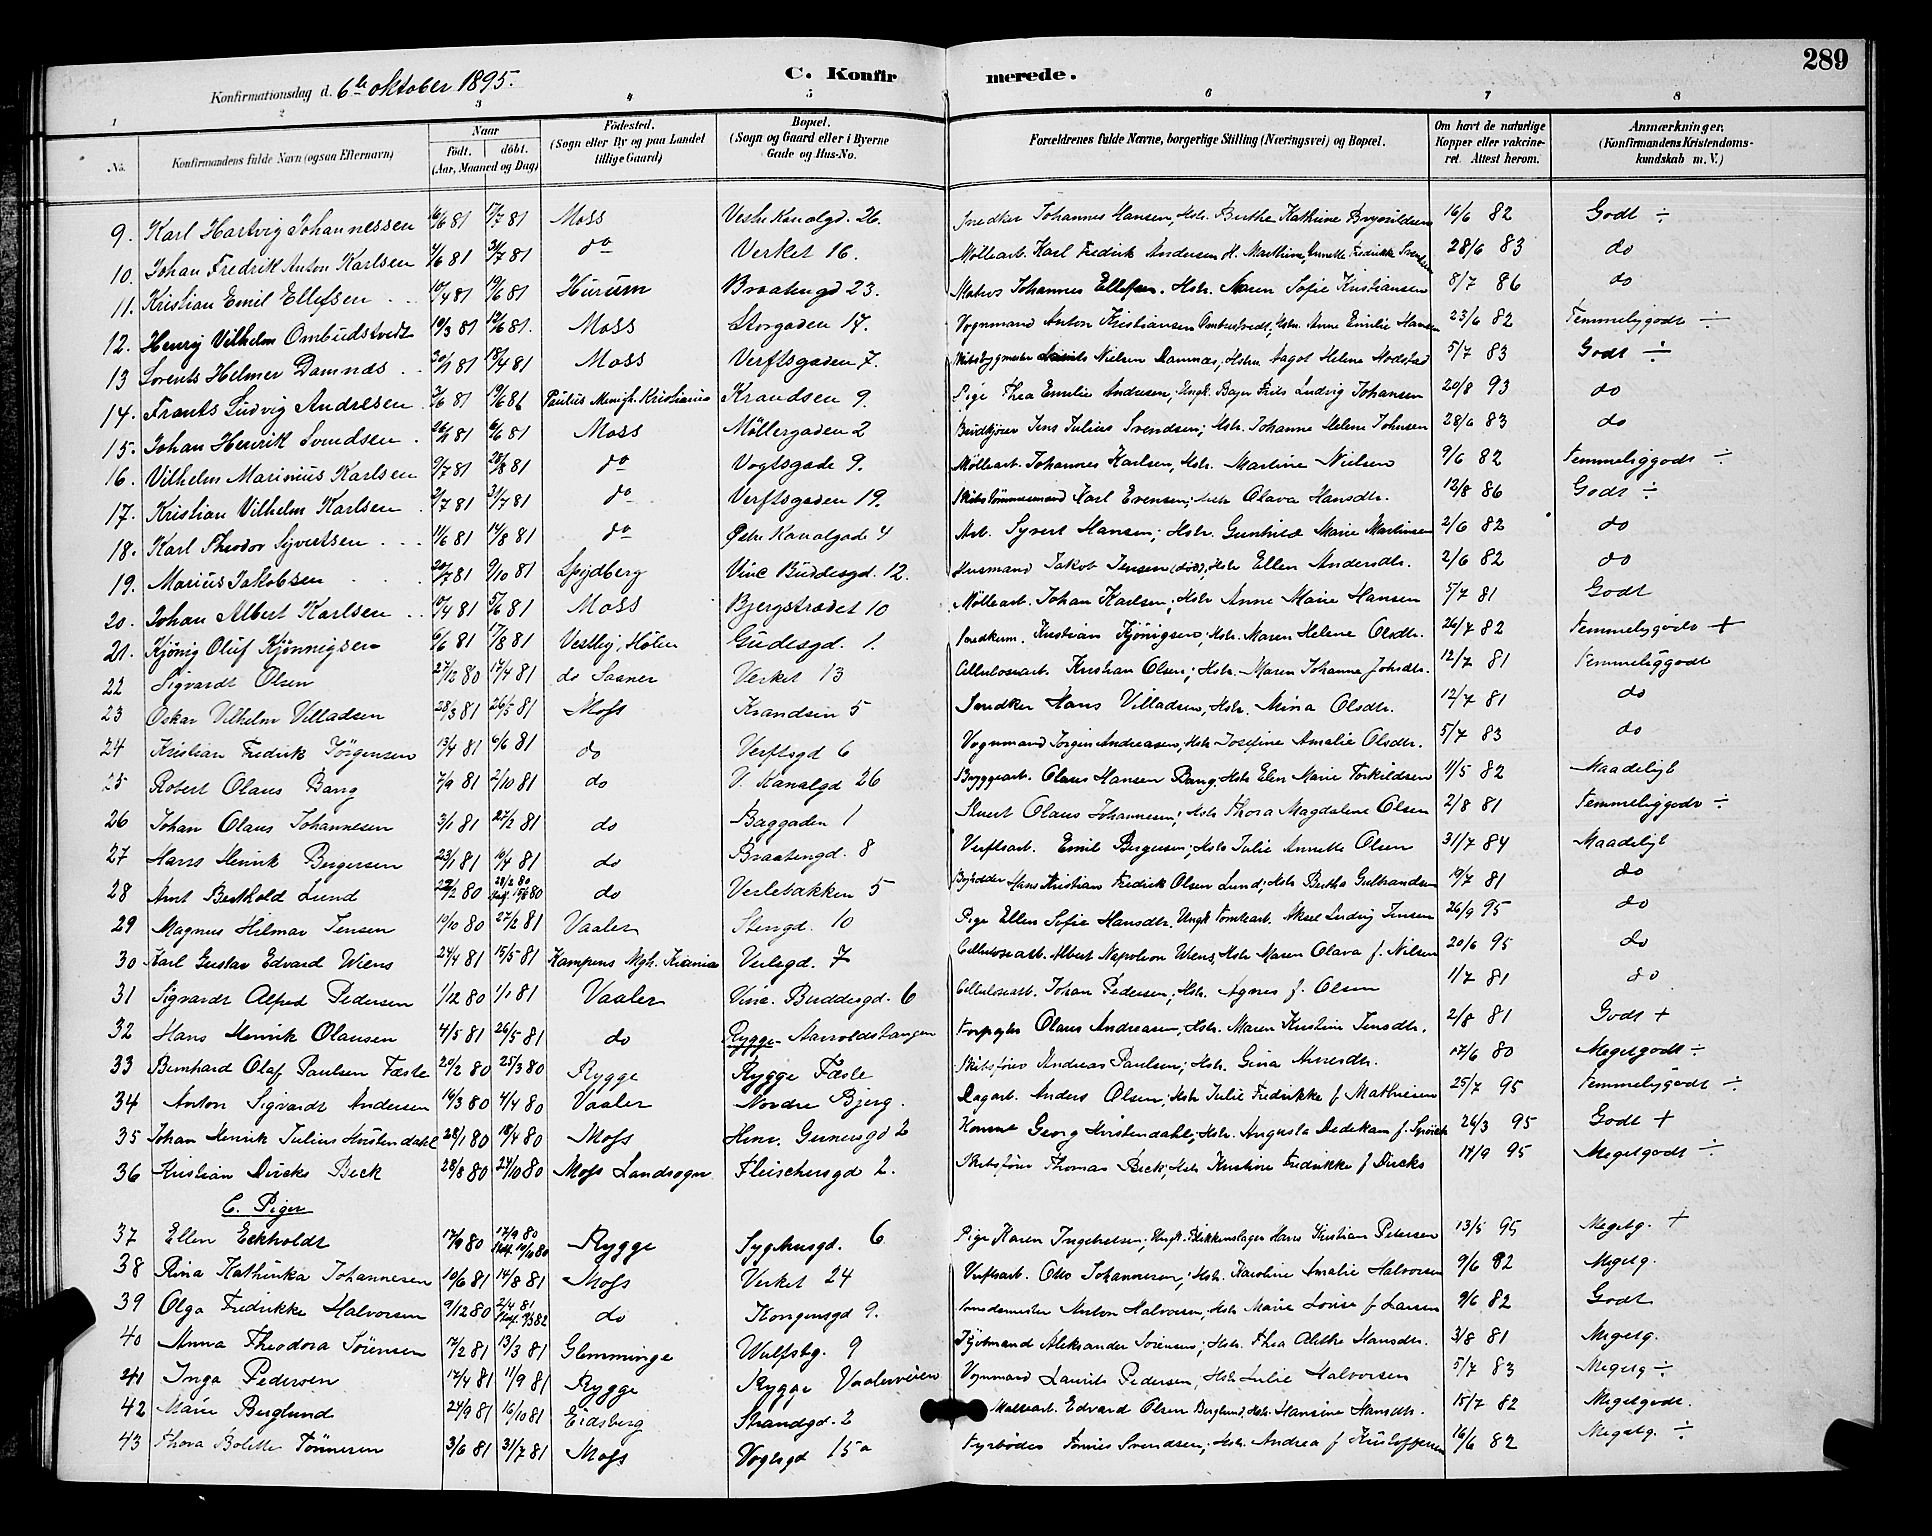 289
C. Konfirmerede.
Konfirmationsdag d. 6te oktober 1895.
1 2 3 4 5 6 7 8
No. Konfirmandens fulde Navn (ogsaa Efternavn) Naar Födt. döbt. (Aar, Maaned og Dag) Födested. (Sogn eller By og paa Landet tillige Gaard) Bopæl. (Sogn og Gaard eller i Byerne Gade og Hus-No. Forældrenes fulde Navne, borgerlige Stilling (Næringsvei) og Bopæl. Om havt de naturlige Kopper eller vakcineret. Attest herom. Anmærkninger. (Konfirmandens Kristendomskundskab m. V.)
9. Karl Hartvig Johannessen 16/6 81 17/7 81 Moss Vestre Kanalgd. 26. Snedker Johannes Hansen, Hstr. Berthe Kathrine 16/6 82 Godt ÷
10. Johan Fredrik Anton Karlsen 4/6 81 31/7 81 do Verket 16. Møllearb. Karl Fredrik Andersen H. Mathine Annette Fredrikke Svendsen 28/6 83 do
11. Kristian Emil Ellefsen 10/4 81 19/6 81 Hurum Braatengd 23. Matros Johannes Ellefsen. Hstr. Maren Sofie Kristiansen 8/7 86 do
12. Henrij Vilhelm Ombudstvedt 19/3 81 12/6 81. Moss Storgaden 17. Vognmand Anton Kristiansen Ombudstvedt, Hstr. Anne Emilie Hansen 23/6 82 Temmeligodt ÷
13 Lorents Helmer Damnæs 30/1 81 18/4 81 Moss Verftsgaden 7. Skibsbygmester Nielsen Damnæs, Hstru Aagot Helene Modstad 5/7 83 Godt ÷
14. Frants Ludvig Andresen 2/6 81 19/6 86 Paulus Menigh. Kristiania Krandsen 9. Pige Thea Emilie Andresen, Ungk. Bager Frits Ludvig Johansen 20/8 93 do
15. Johan Henrik Svendsen 26/1 81 6/6 81 Moss Möllergaden 2 Brødkjører Jens Julius Svendsen; Hstr. Johanne Helene Johnsen 28/6 83 do
16. Vilhelm Marinius Karlsen 9/7 81 28/8 81 do Vogtsgade 9. Møllearb. Johannes Karlsen, Hstr. Martine Nielsen 9/6 82 Temmeliggodt ÷
17. Kristian Vilhelm Karlsen 2/7 81 31/7 81 do Verftsgaden 19. Skibstömmermand Karl Evensen; hstr Olava Hansdtr. 12/8 86 Godt ÷
18. Karl Theodor Syvertsen 11/6 81 14/8 81 do Østre Kanalgade 4 Arb. Syvert Hansen; Hstr. Gunhild Marie Martinsen 2/6 82 do
19. Marius Jakobsen 20/7 81 9/10 81 Spydberg Vinc Buddesgd. 12. Husmand Jakob Jensen (död), Hstr Ellen Andersdtr. 2/6 82 do
20. Johan Albert Karlsen 10/4 81 5/6 81 Moss Bjergstrædet 10 Møllearb. Johan Karlsen; Hstr Anne Marie Hansen 5/7 81 Godt
21. Kjönig Oluf Kjönnigsen 6/6 81 17/8 81 Vestby, Hölen Gudesgd. 1. Snedkerm. Kristian Kjönigsen; Hstr. Maren Helene Olsdtr. 26/7 82 Temmeligodt +
22 Sigvardt Olsen 27/12 80 17/4 81 do Saaner Verket 13 Cellulosearb. Kristian Olsen; Hstr. Maren Johanne Johsdtr. 12/7 81 Temmeliggodt
23 Oskar Vilhelm Villadsen 28/3 81 26/5 81 Moss Krandsen 5 Snedker Hans Villadsen, Hstr. Mina Olsdtr. 12/7 81 do
24 Kristian Fredrik Jörgensen 13/4 81 6/6 81 do Verftsgd 6 Vognmand Jörgen Andreasen, Hstr Josefine Amalie Olsdtr. 5/7 83 do
25 Robert Olaus Bang 7/9 81 2/10 81 do V. Kanalgd 26 Bryggearb. Olaus Hansen Bang, Hstr Elen Marie Torkildsen 11/5 82 Maadeligt
26 Johan Olaus Johannesen 3/1 81 27/2 81 do Baggaden 1 Olaus Johannesen; Hstr Thora Magdalene Olsen 2/8 81 Temmeliggodt ÷
27 Hans Henrik Bergersen 23/1 81 10/4 81 do Braatengd. 8 Verftsarb. Emil Bergersen; Hstr Julie Annette Olsen 31/7 84 Maadeligt
28 Arnt Berthold Lund 22/2 80 28/2 80 Stadf. 15/8 80 do Verlebakken 5 Hans Kristian Fredrik Olsen Lund; Hstr Bertha Gulbrandsen 19/7 81 do
29 Magnus Hilmar Jensen 19/10 80 27/2 81 Vaaler Stengd. 10 Pige Ellen Sofie Hansdtr. Ungk Tomtearb. Aksel Ludvig Jensen 26/9 95 do
30 Karl Gustav Edvard Wiens 24/4 81 15/5 81 Kampens Mgh. Kr.ania Verlegd. 7 Cellulosearb. Albert Napoleon Wiens, Hstr Maren Olava f. Nilsen 20/6 95 do
31 Sigvardt Alfred Pedersen 1/12 80 1/1 81 Vaaler Vinc. Buddesgd. 6 Cellulosearb. Johan Pedersen; Hstr. Agnes f. Olsen 1/7 81 do
32 Hans Henrik Olausen 4/5 81 26/5 81 do Rygge. Aarvoldstangen Forpagter Olaus Andreasen, Hstr. Maren Kristine Jensdtr. 2/8 81 Godt +
33 Bernhard Olaf Paulsen Fæste 20/2 80 25/3 80 Rygge Rygge Fæste Skibsförer Andreas Paulsen; Hstr. Gina 17/6 80 Megetgodt ÷
34 Anton Sigvardt Andersen 14/3 80 4/4 80 Vaaler Nordre Bjerg. Dagarb. Anders Olsen; Hstr Julie Fredrikke f Mathisen 25/7 95 Temmeligodt ÷
35 Johan Henrik Julius Hirstendahl 28/1 80 18/4 80 Moss Henr. Gernersgd 2 Georg Hirstendahl; Hstr. Augusta Dedekam f. 24/3 95 Godt +
36 Kristian Dircks Beck 28/8 80 24/10 80 Moss Landsogn Fleischersgd 2. Skibsförer Thomas Beck; Hstr Kristine Fredrikke f Dircks 14/9 95 Megetgodt ÷
C. Piger
37 Ellen Eckholdt 17/9 80 17/9 80 Stadf. Rygge Syghusgd. 6 Pige Karen Ingebretsen; Ungk. Blikkenslager Hans Kristian Petersen 13/5 95 Megetg. +
38 Rina Kathinka Johannesen 19/6 81 14/8 81 Moss Verket 24 Verftsarb. Otto Johannesen; Hstr. Karoline Amalie Halvorsen 9/6 82 Megetg.
39 Olga Fredrikke Halvorsen 9/12 80 2/4 81 Stadf. 9/3 82 do Kongensgd 9. Smedemester Anton Halvorsen, Hstr Marie Louise f Larsen 9/6 82 Godt
40 Anna Theodora Sörensen 17/2 81 13/3 81 Glemminge Wulfsbg. 9 Aleksander Sörensen; Hstr. Thea Alethe Hansdtr. 3/8 81 Megetg.
41 Inga Pedersen 17/4 81 11/9 81 Rygge Rygge Vaalerveien Vognmand Laurits Pedersen, Hstr Julie Halvorsen 5/7 83 Megetg ÷
42 Marie Berglund 24/9 81 16/10 81 Eidsberg Strandgd. 2 Møllearb. Edvard Olsen Berglund, Hstr. Hansine Hansdtr. 15/7 82 Megetgodt.
43 Thora Bolette Tönnesen 3/6 81 31/7 81 Moss Vogtsgd 15a Fyrböder Tönnes Svendsen; Hstr. Andrea f Kristoffersen 16/6 82 Megetg. ÷